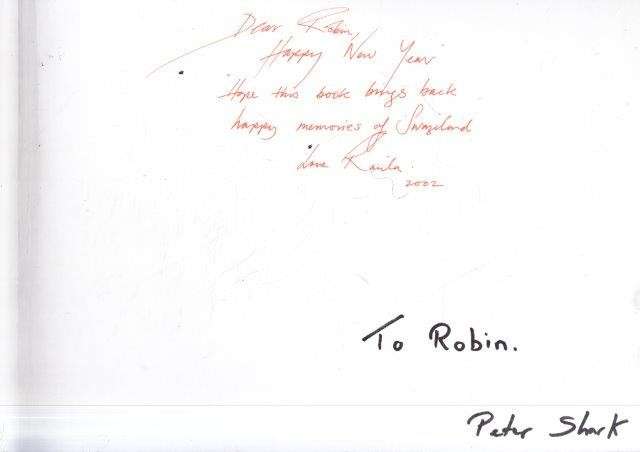 Dear Robin,
Happy New Year
Hope this book brings back
happy memories of Swaziland
Love
2002
To Robin.
Peter Shark